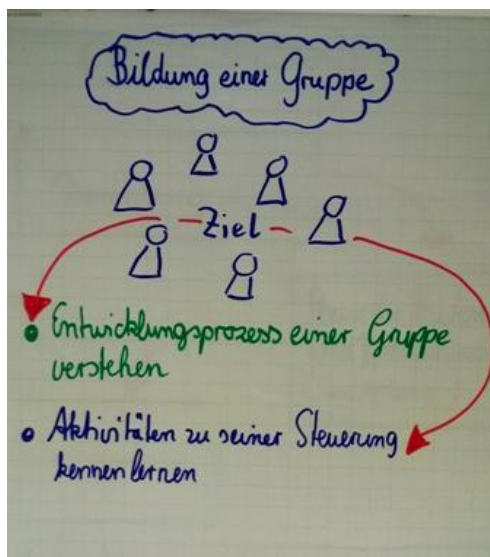 Bildung einer Gruppe
- Ziel -
• Entwicklungsprozess einer Gruppe
verstehen
• Aktivitäten zu seiner Steuerung
kennenlernen